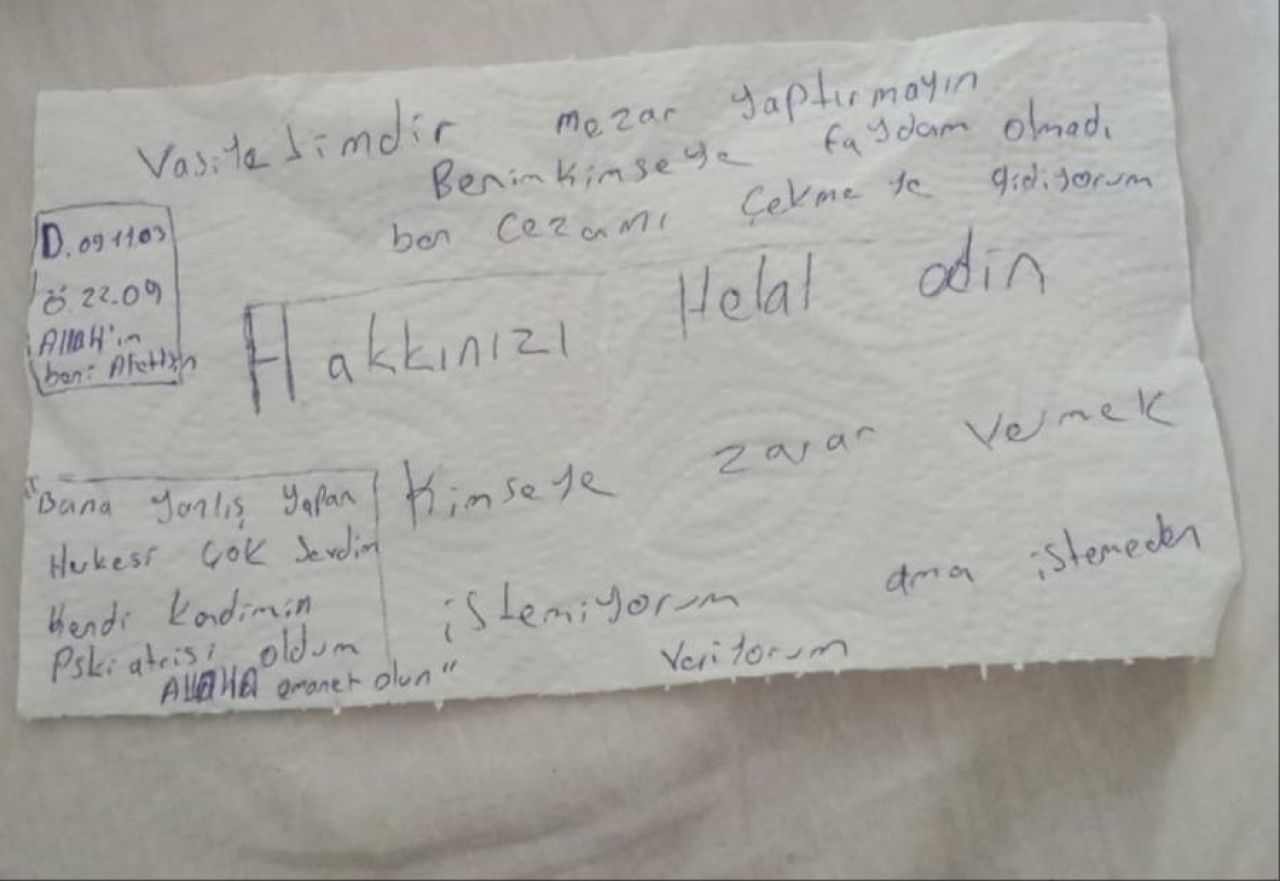 Vasiyetimdir mezar yaptırmayın
Benim kimseye faydam olmadı
ben cezamı çekmeye gidiyorum
D. 091103
Ö. 22.09
Allah'ın
beni Afettsn
Hakkınızı Helal edin
Kimseye zarar vermek
istemiyorum ama istemeden
veriyorum
"Bana yanlış yapan
Herkesi çok sevdim
Kendi kendimin
Pskiatrisi oldum
ALLAHA emanet olun"